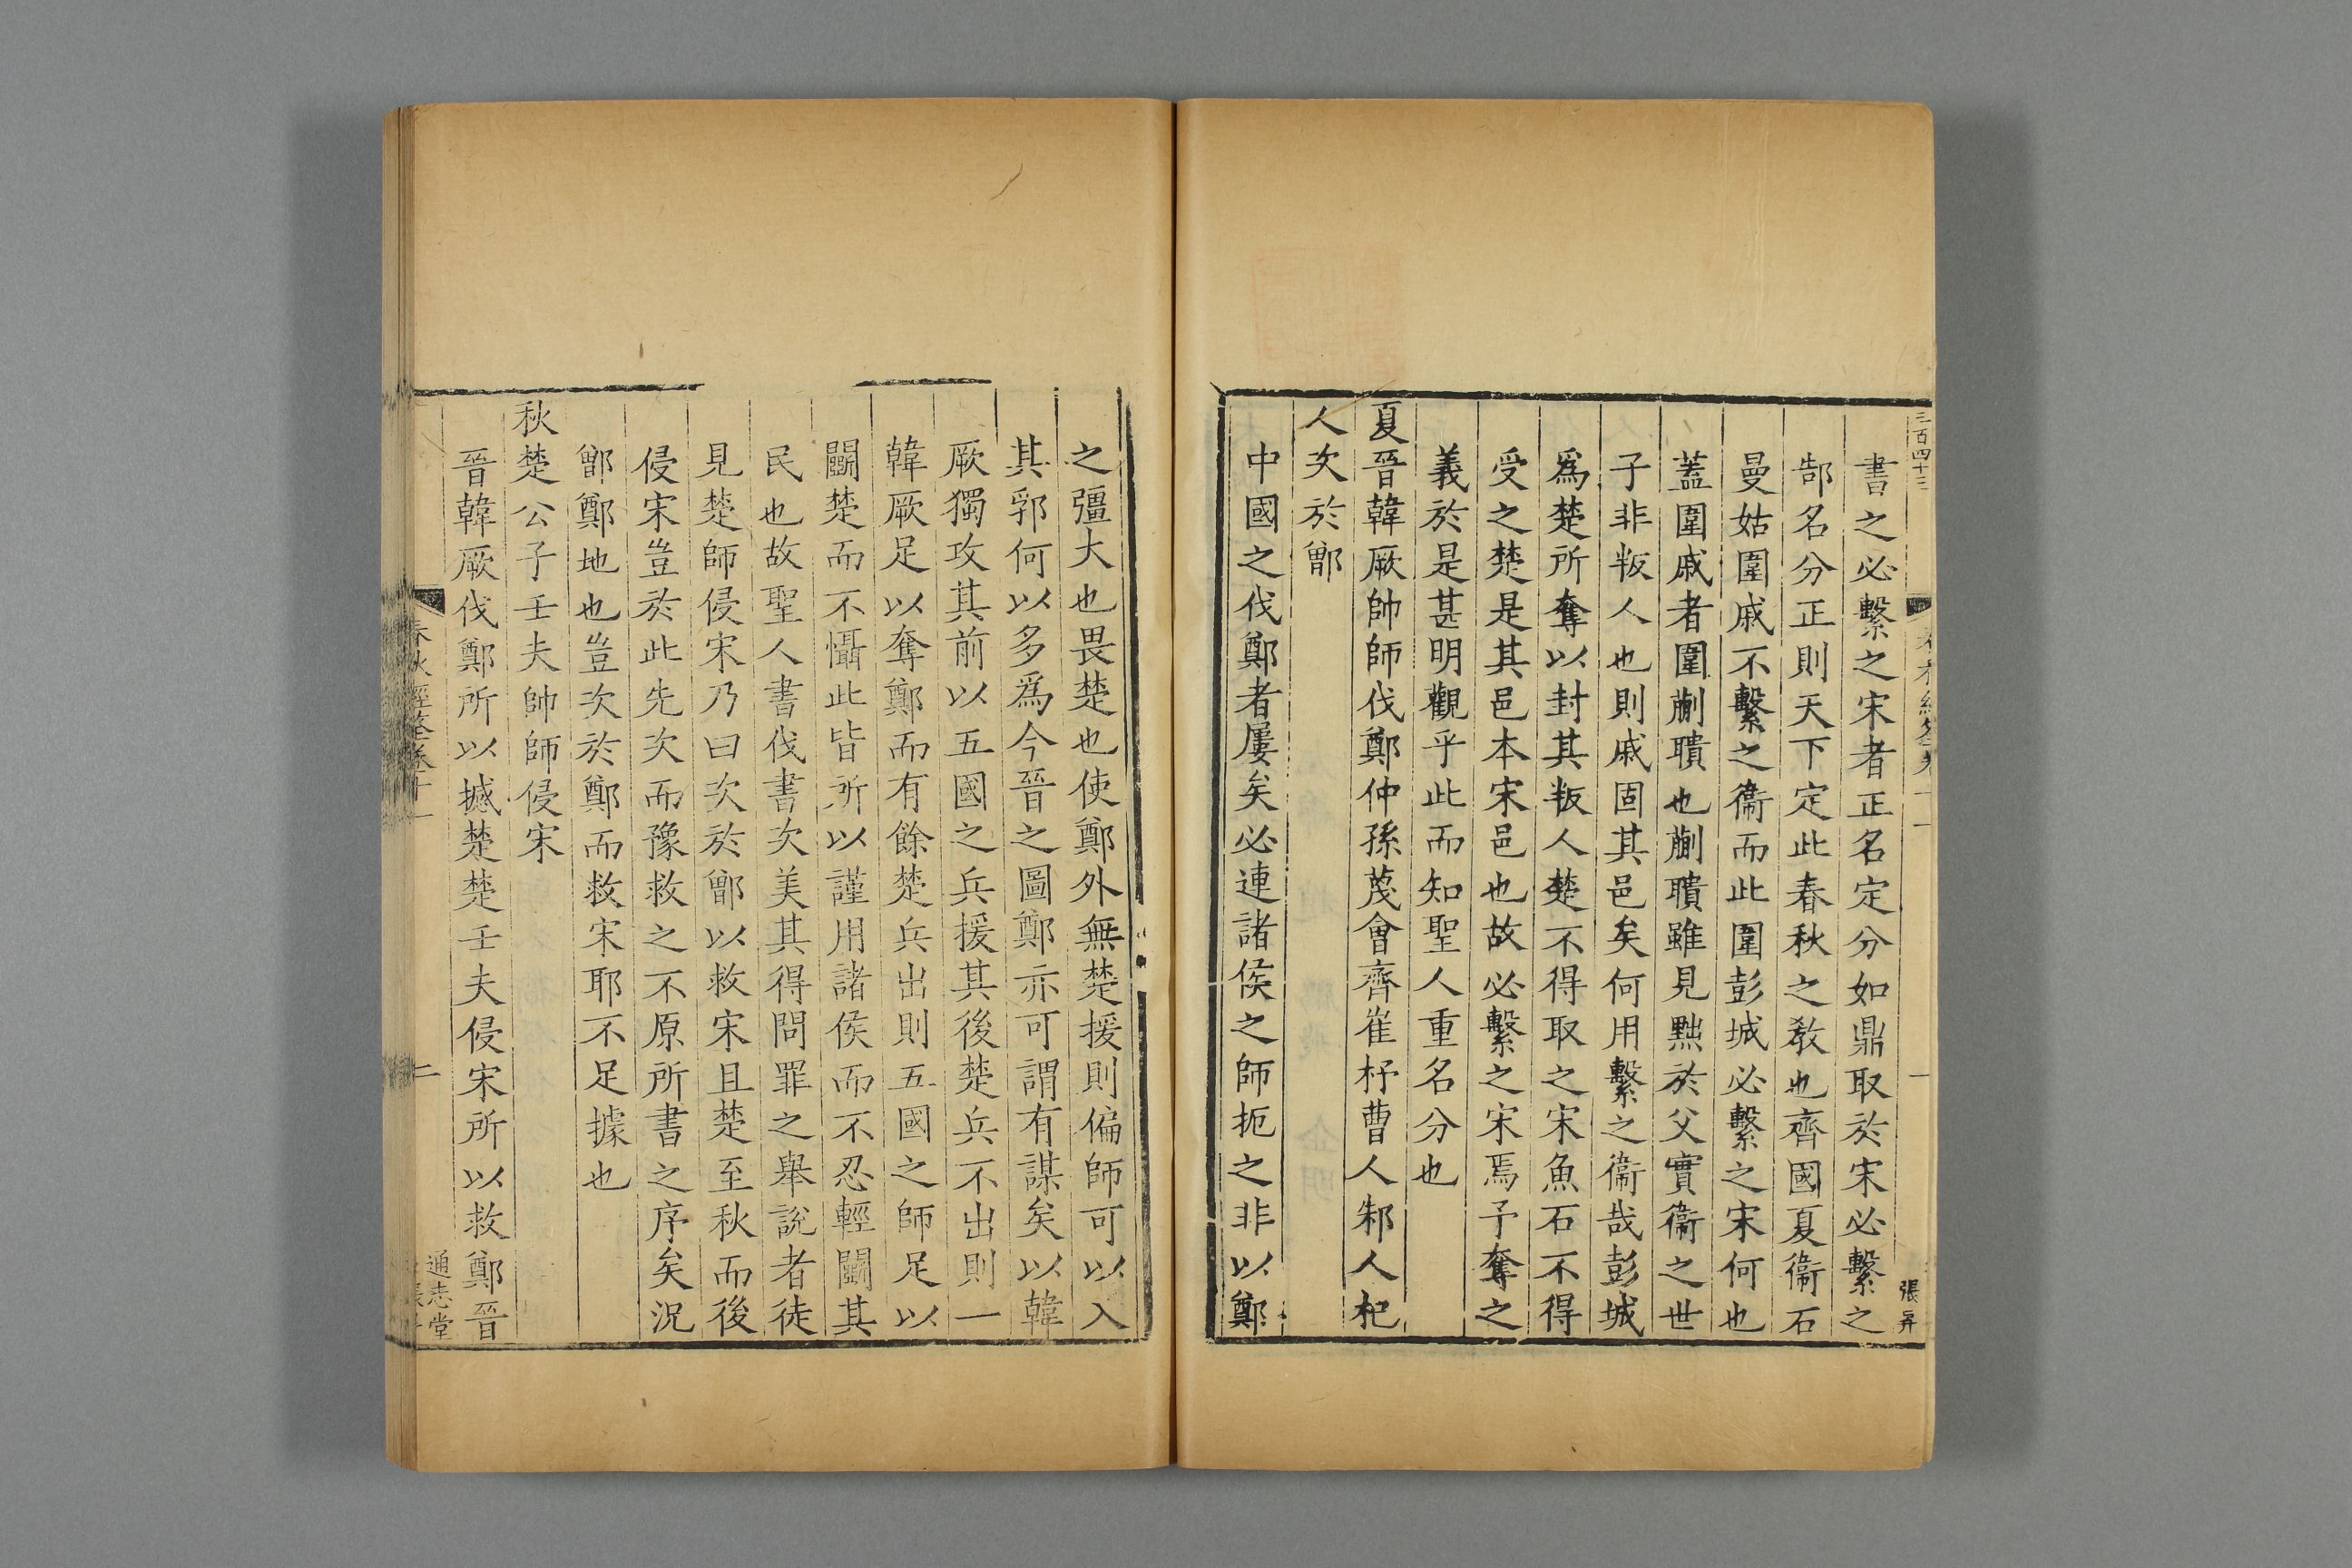 三百四十三
一
張昇
書之必繫之宋者正名定分如鼎取於宋必繫之
郜名分正則天下定此春秋之教也齊國夏衞石
曼姑圍戚不繫之衞而此圍彭城必繫之宋何也
蓋圍戚者圍蒯聵也蒯聵雖見黜於父實衞之世
子非叛人也則戚固其邑矣何用繫之衞哉彭城
爲楚所奪以封其叛人楚不得取之宋魚石不得
受之楚是其邑本宋邑也故必繫之宋焉予奪之
義於是甚明觀乎此而知聖人重名分也
夏晉韓厥帥師伐鄭仲孫蔑會齊崔杼曹人邾人杞
人次於鄫
中國之伐鄭者屢矣必連諸侯之師扼之非以鄭
之彊大也畏楚也使鄭外無楚援則偏師可以入
其郛何以多爲今晉之圖鄭亦可謂有謀矣以韓
厥獨攻其前以五國之兵援其後楚兵不出則一
韓厥足以奪鄭而有餘楚兵出則五國之師足以
鬭楚而不懾此皆所以謹用諸侯而不忍輕鬭其
民也故聖人書伐書次美其得問罪之舉說者徒
見楚師侵宋乃曰次於鄫以救宋且楚至秋而後
侵宋豈於此先次而豫救之不原所書之序矣況
鄫鄭地也豈次於鄭而救宋耶不足據也
秋楚公子壬夫帥師侵宋
晉韓厥伐鄭所以撼楚楚壬夫侵宋所以救鄭晉
春秋經筌卷十一
二
通志堂